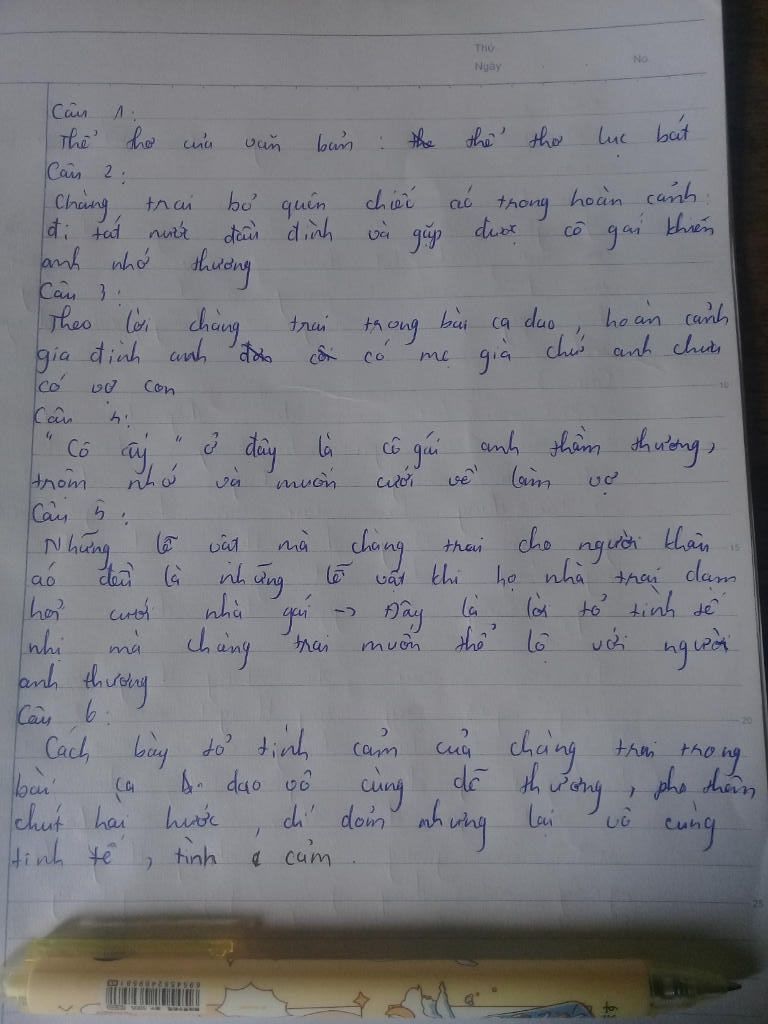 Thứ
Ngày
No.
Câu 1:
Thể thơ của văn bản : thể thơ lục bát
Câu 2:
Chàng trai bỏ quên chiếc áo trong hoàn cảnh:
đi tát nước đầu đình và gặp được cô gái khiến
anh nhớ thương
Câu 3:
Theo lời chàng trai trong bài ca dao, hoàn cảnh
gia đình anh có mẹ già chứ anh chưa
có vợ con
10
Câu 4:
"Cô ấy" ở đây là cô gái anh thầm thương,
trộm nhớ và muốn cưới về làm vợ
Câu 5:
Những lễ vật mà chàng trai cho người khâu
15
áo đều là những lễ vật khi họ nhà trai dạm
hỏi cưới nhà gái -> Đây là lời tỏ tình tế
nhị mà chàng trai muốn thổ lộ với người
anh thương
Câu 6:
20
Cách bày tỏ tình cảm của chàng trai trong
bài ca dao vô cùng dễ thương, pha thêm
chút hài hước, dí dỏm nhưng lại vô cùng
tinh tế, tình cảm.
25
6954582469581